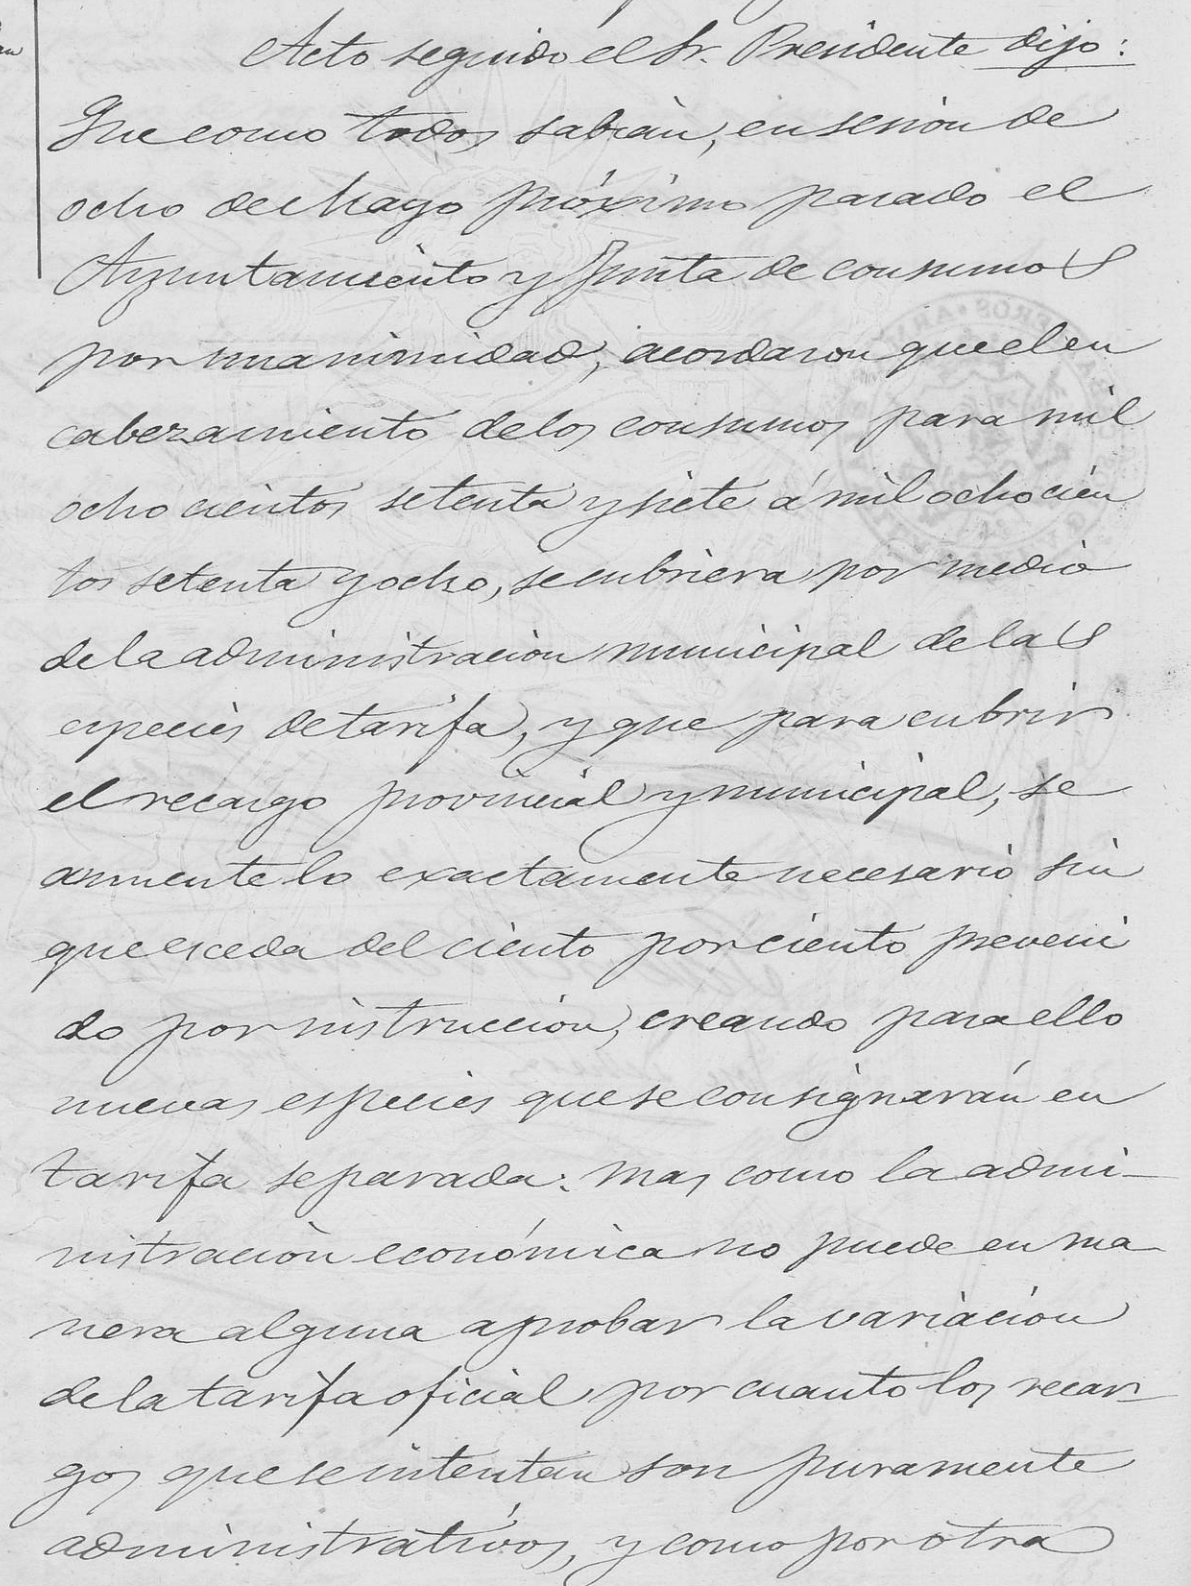 Acto seguido el Sr. Presidente dijo:
Que como todos sabian, en sesion de
ocho de Mayo próximo pasado el
Ayuntamiento y Junta de consumos
por unanimidad, acordaron que el en
cabezamiento de los consumos para mil
ocho cientos setenta y siete á mil ocho cien
tos setenta y ocho, se cubriera por medio
de la administracion municipal de las
especies de tarifa, y que para cubrir
el recargo provincial y municipal, se
aumente lo exactamente necesario sin
que esceda del ciento por ciento preveni
do por instruccion, creando para ello
nuevas especies que se consignarán en
tarifa separada: mas como la admi-
nistracion económica no puede en ma-
nera alguna aprobar la variacion
de la tarifa oficial por cuanto los recar-
gos que se intentan son puramente
administrativos, y como por otra